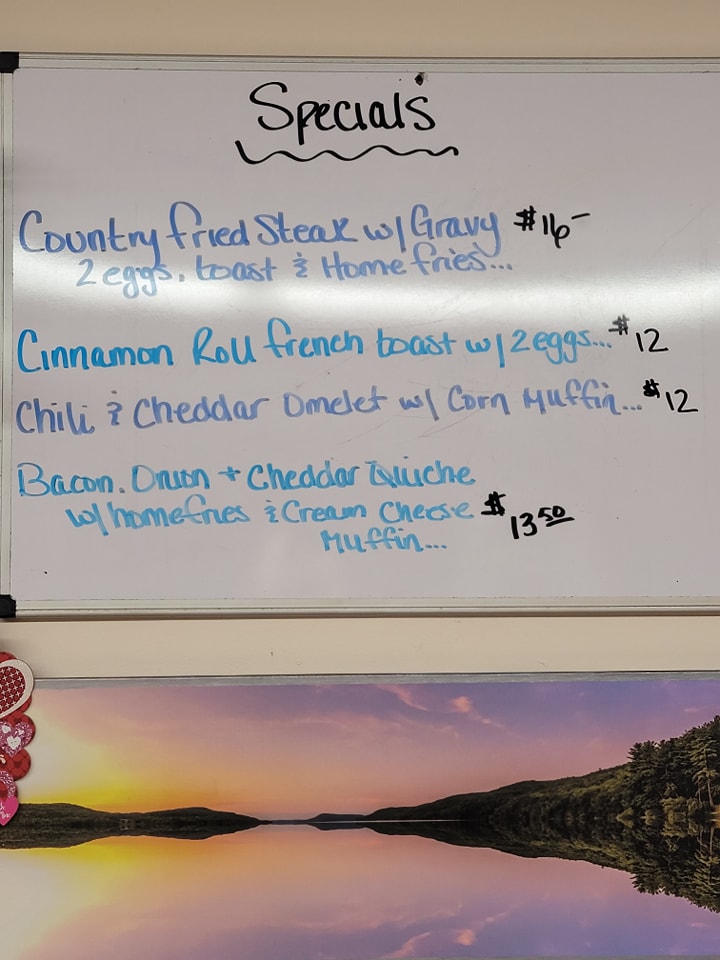 Specials
Country fried Steak w/ Gravy $16-
2 eggs, toast & Home fries...
Cinnamon Roll french toast w/ 2 eggs... $12
Chili & Cheddar Omelet w/ Corn Muffin... $12
Bacon, Onion + Cheddar Quiche
w/ homefries & Cream Cheese $13 50
Muffin...